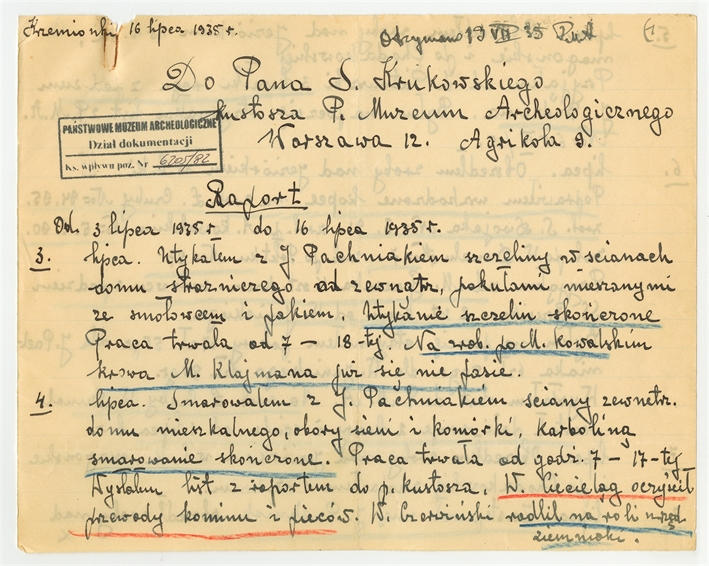 Krzemionki, 16 lipca 1935 r.
Otrzymano 19 VII 35
1
Do Pana S. Krukowskiego
kustosza P. Muzeum Archeologicznego
Warszawa 12. Agrikola 9.
PAŃSTWOWE MUZEUM ARCHEOLOGICZNE
Dział dokumentacji
Ks. wpływu poz. Nr 6205/82
Raport
Od. 3 lipca 1935 r. do 16 lipca 1935 r.
3. lipca. Utykałem z J Pachniakiem szczeliny w ścianach
domu strażniczego od zewnątr, pakułami mieszanymi
ze smołowcem i Utykanie szczelin skończone
Praca trwała od 7 – 18-ty. Na zrob. po M. Kowalskim
krowa M. Klajmana już się nie pasie.
4. lipca. Smarowałem z J. Pachniakiem ściany zewnetr.
domu mieszkalnego, obory sieni i komórki, karboliną
smarowanie skończone. Praca trwała od godz. 7 – 17-tej
Wysłałem list z raportem do p. kustosza. W. Cieciąg oczyścił
przewody komina i pieców. W. Czerwiński radlił na roli urzęd.
ziemniaki.